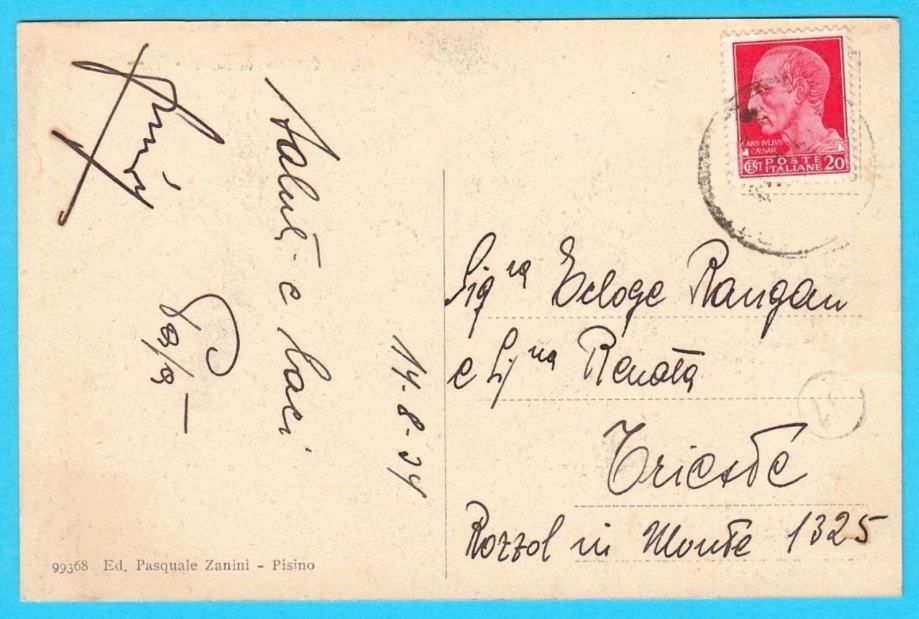 Saluti e baci
14-8-34
CAIVS IVLIVS
CAESAR
CENT POSTE ITALIANE 20
Sigra Ecloge Rangan
e Signa Renata
Trieste
Rozzol in Monte 1325
99368 Ed. Pasquale Zanini - Pisino